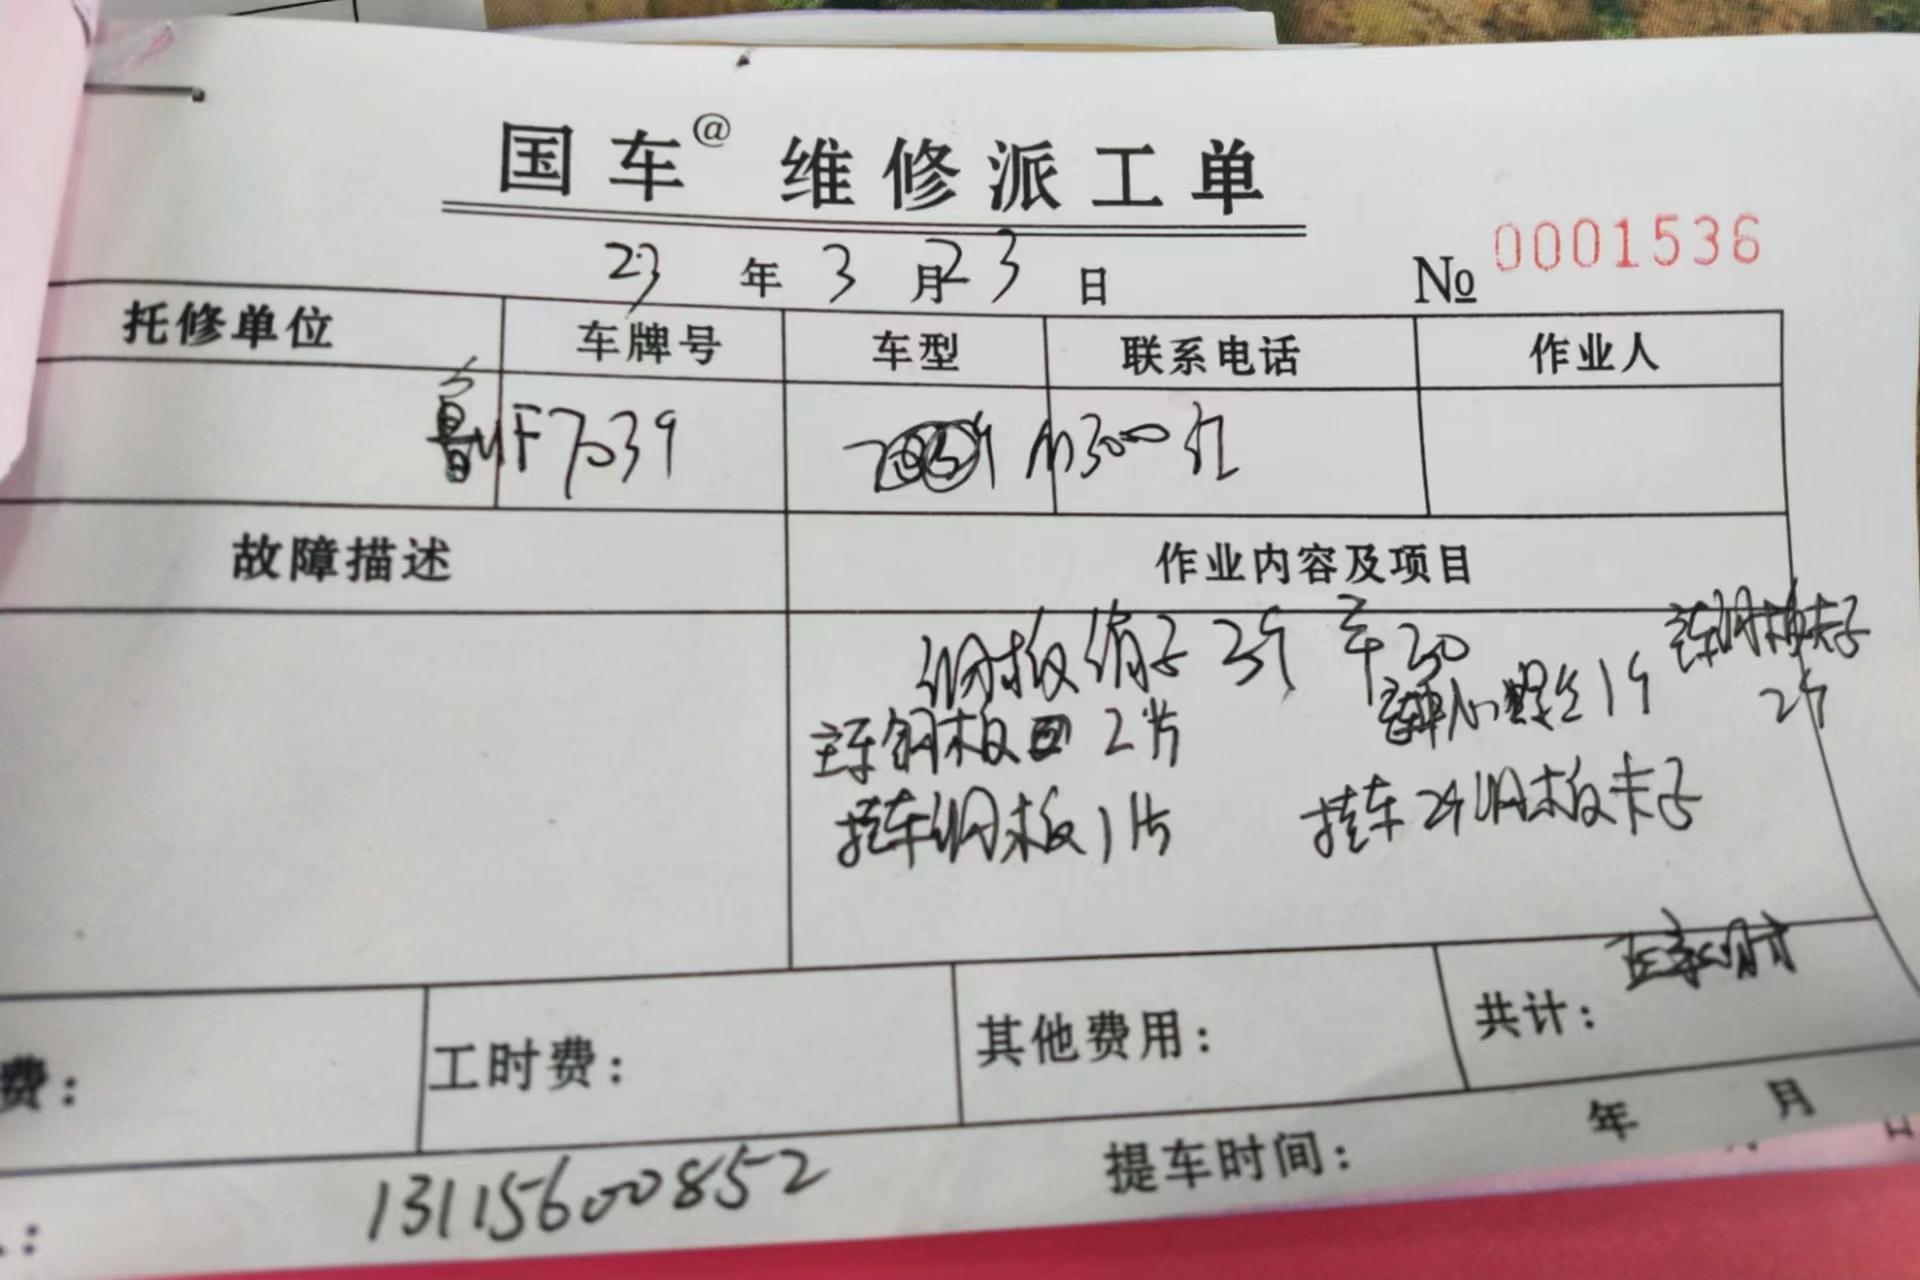 国车@ 维修派工单
23 年 3 月 23 日
№ 0001536
托修单位 车牌号 车型 联系电话 作业人
鲁MF7039 m3000 红
故障描述 作业内容及项目
钢板销子 3个 主车钢板卡子
主车钢板 2片 螺丝1个 2个
挂车钢板1片 挂车2个钢板卡子
费: 工时费: 其他费用: 共计:
13115600852 提车时间: 年 月 日